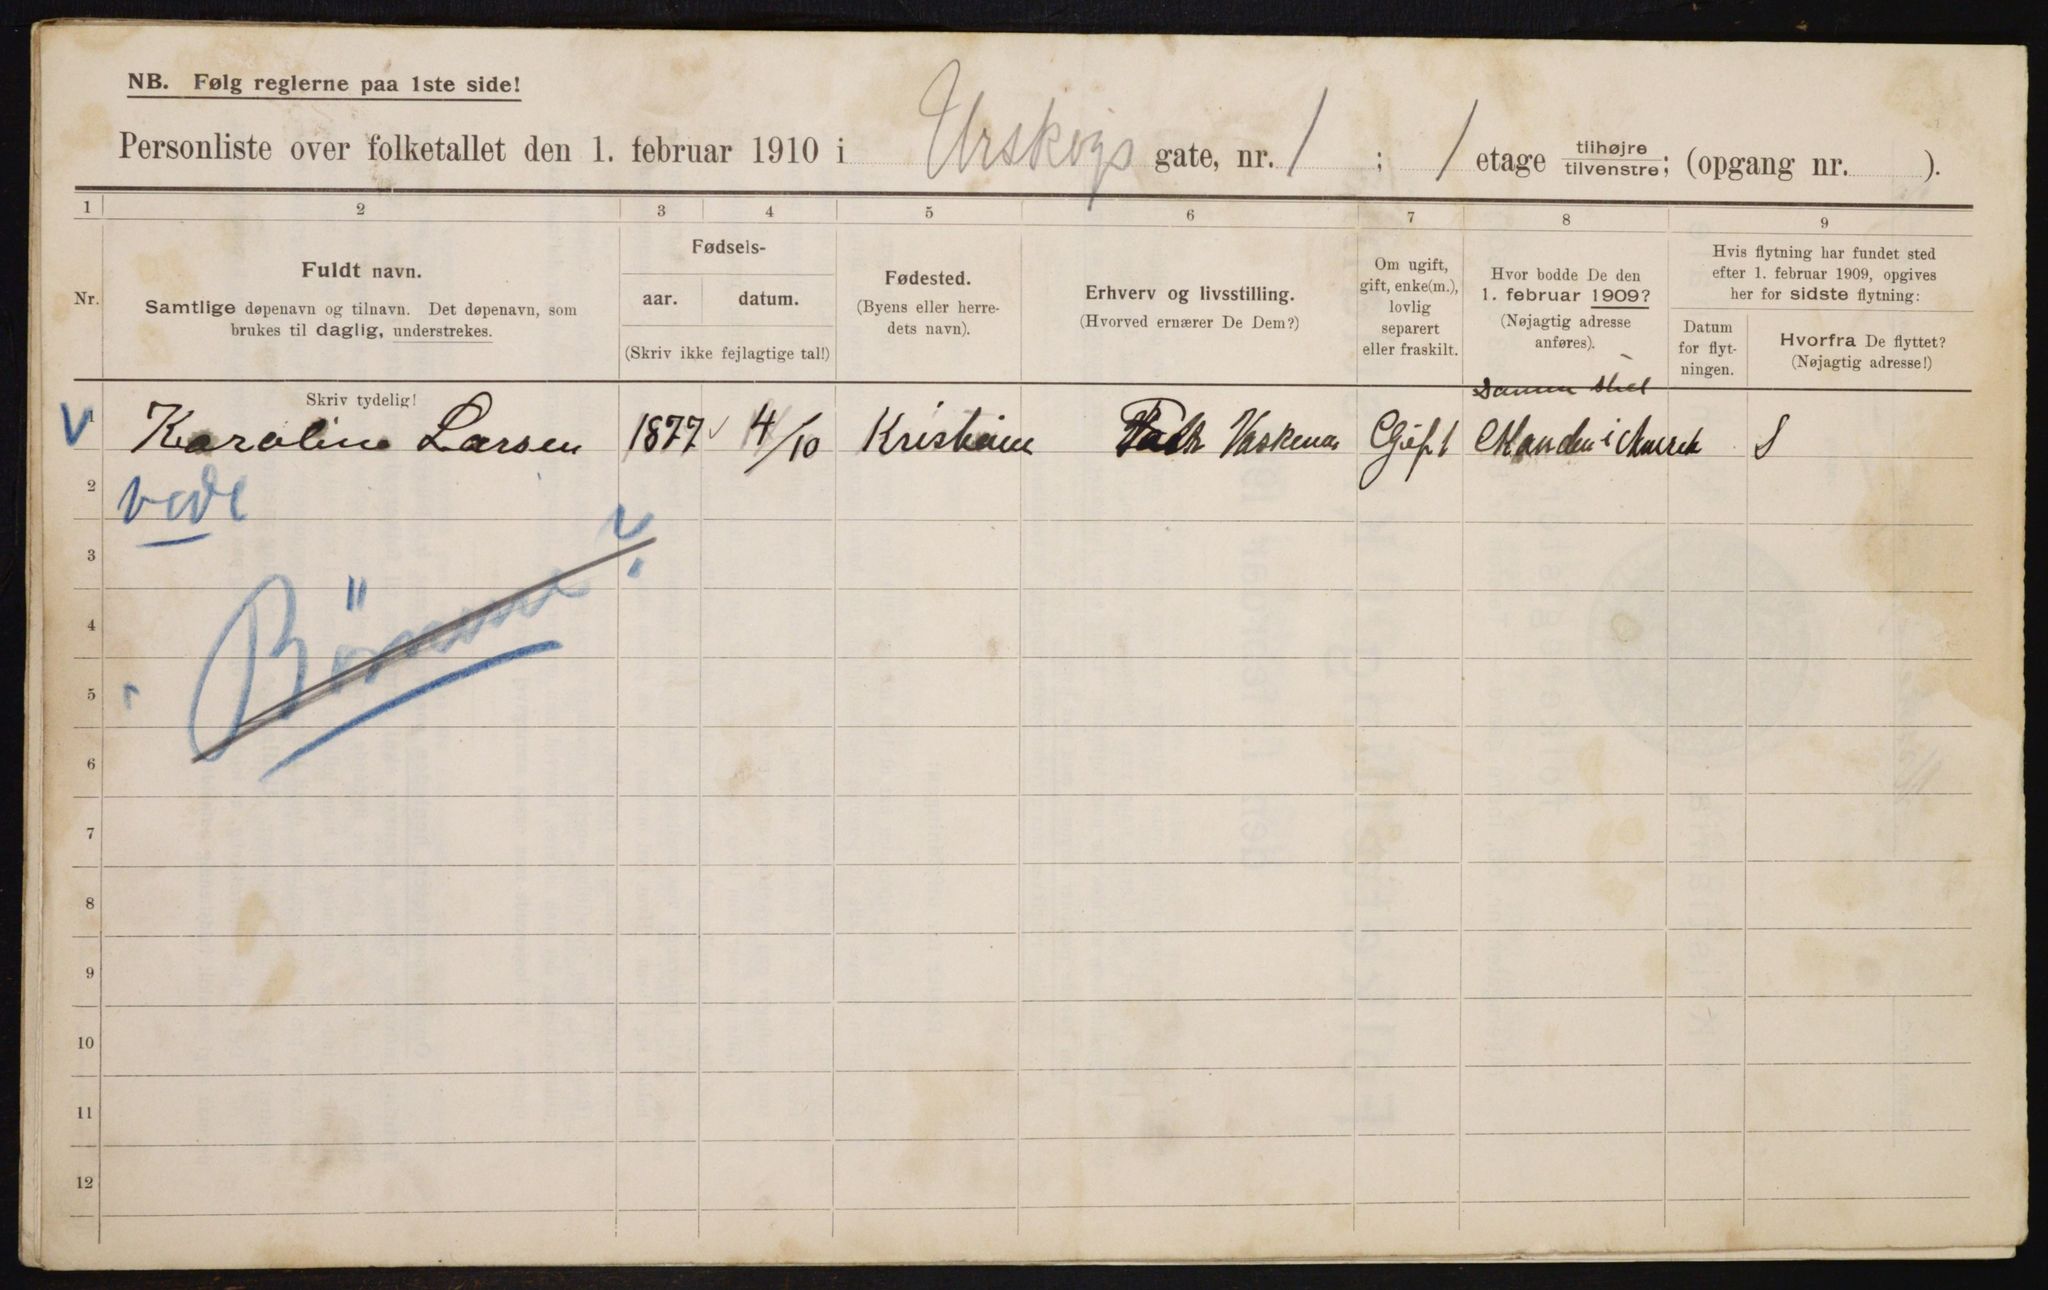 NB. Følg reglerne paa 1ste side!
Personliste over folketallet den 1. februar 1910 i Urskogs gate, nr. 1 ; 1 etage tilhøjre/tilvenstre; (opgang nr. ).
1 2 3 4 5 6 7 8 9
Nr.
Fuldt navn.
Samtlige døpenavn og tilnavn. Det døpenavn, som
brukes til daglig, understrekes.
Fødsels-
aar. datum.
(Skriv ikke fejlagtige tal!)
Fødested.
(Byens eller herre-
dets navn).
Erhverv og livsstilling.
(Hvorved ernærer De Dem?)
Om ugift,
gift, enke(m.),
lovlig
separert
eller fraskilt.
Hvor bodde De den
1. februar 1909?
(Nøjagtig adresse
anføres).
Hvis flytning har fundet sted
efter 1. februar 1909, opgives
her for sidste flytning:
Datum
for flyt-
ningen.
Hvorfra De flyttet?
(Nøjagtig adresse!)
Skriv tydelig!
1 Karoline Larsen 1877 4/10 Kristiania Gift
2
3
4
5
6
7
8
9
10
11
12